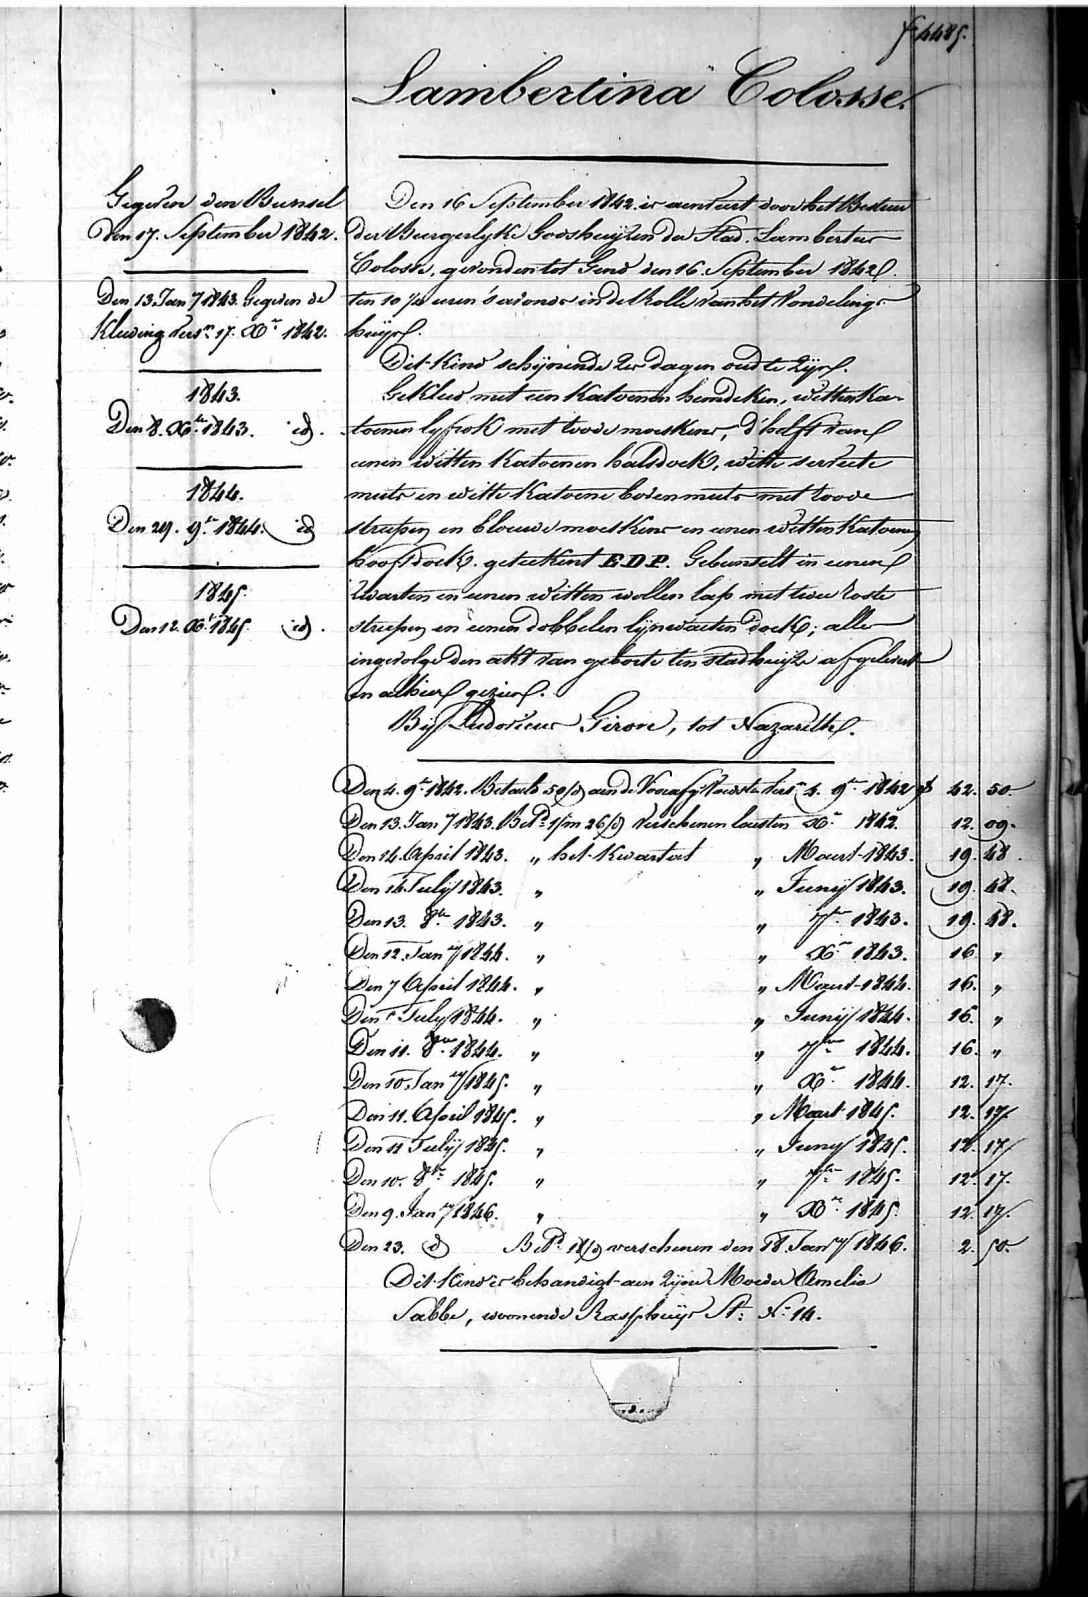 f° 4485.
Lambertina Colosse.
Gegeven den Bunsel
den 17. September 1842.
Den 13 Jan.y 1843. Gegeven de
Kleeding vers.n 17. Xr 1842.
1843.
Den 8. Xbr 1843. id.
1844.
Den 29. 9br 1844. id
1845.
Den 12. Xr 1845. id.
Den 16 September 1842. is aenveert door het Bestuer
der Burgerlyke Godshuyzen der Stad. Lambertus
Colosse, gevonden tot Gend den 16. September 1842
ten 10 ¼ uren 's avonds in de Rolle van het Vondelings
huys.
Dit Kind schynende 2er dagen oud te zyn.
Gekleed met een Katoenen hemdeken, witten Ka-
toenen lyfrok met roode moeskens, d'helft van
eenen witten Katoenen halsdoek, witte serviete
muts en witte Katoene bovenmuts met roode
streepen en blouwe moeskens en eenen witten Katoenen
hoofdoek. geteekent E.D.P. Gebunselt in eenen
zwarten en eenen witten wollen lap met twee roste
streepen en eenen dobbelen lynwaeten doek; alles
ingevolge den akt van geboorte ten stadhuyze afgelevert
en alhier gezien.
Bij Ludovicus Girone, tot Nazareth.
Den 4. 9r 1842. Betaelt 50/d aen de Voorafg. Voedster vers.n 4. 9r 1842 42. 50.
Den 13. Jan.y 1843. Bet.d 1/m 26/d verschenen lausten Xr 1842. 12. 09.
Den 14. April 1843. „ het Kwartael „ Maert 1843. 19. 48.
Den 14. July 1843. „ „ Juny 1843. 19. 48.
Den 13. 8br 1843. „ „ 7br 1843. 19. 48.
Den 12. Jan.y 1844. „ „ Xr 1843. 16. „
Den 7 April 1844. „ „ Maert 1844. 16. „
Den July 1844. „ „ Juny 1844. 16. „
Den 11. 8br 1844. „ „ 7br 1844. 16. „
Den 10. Jan.y 1845. „ „ Xr 1844. 12. 17.
Den 11. April 1845. „ „ Maert 1845. 12. 17.
Den 11 July 1845. „ „ Juny 1845. 12. 17
Den 10. 8br 1845. „ „ 7br 1845. 12. 17.
Den 9. Jan.y 1846. „ „ Xr 1845. 12. 17.
Den 23. d Bet.d 18/d verschenen den 18. Jan.y 1846. 2. 50.
Dit Kind is behandigt aen zyne Moeder Amelia
Sabbe, woonende Rasphuys St. N° 14.